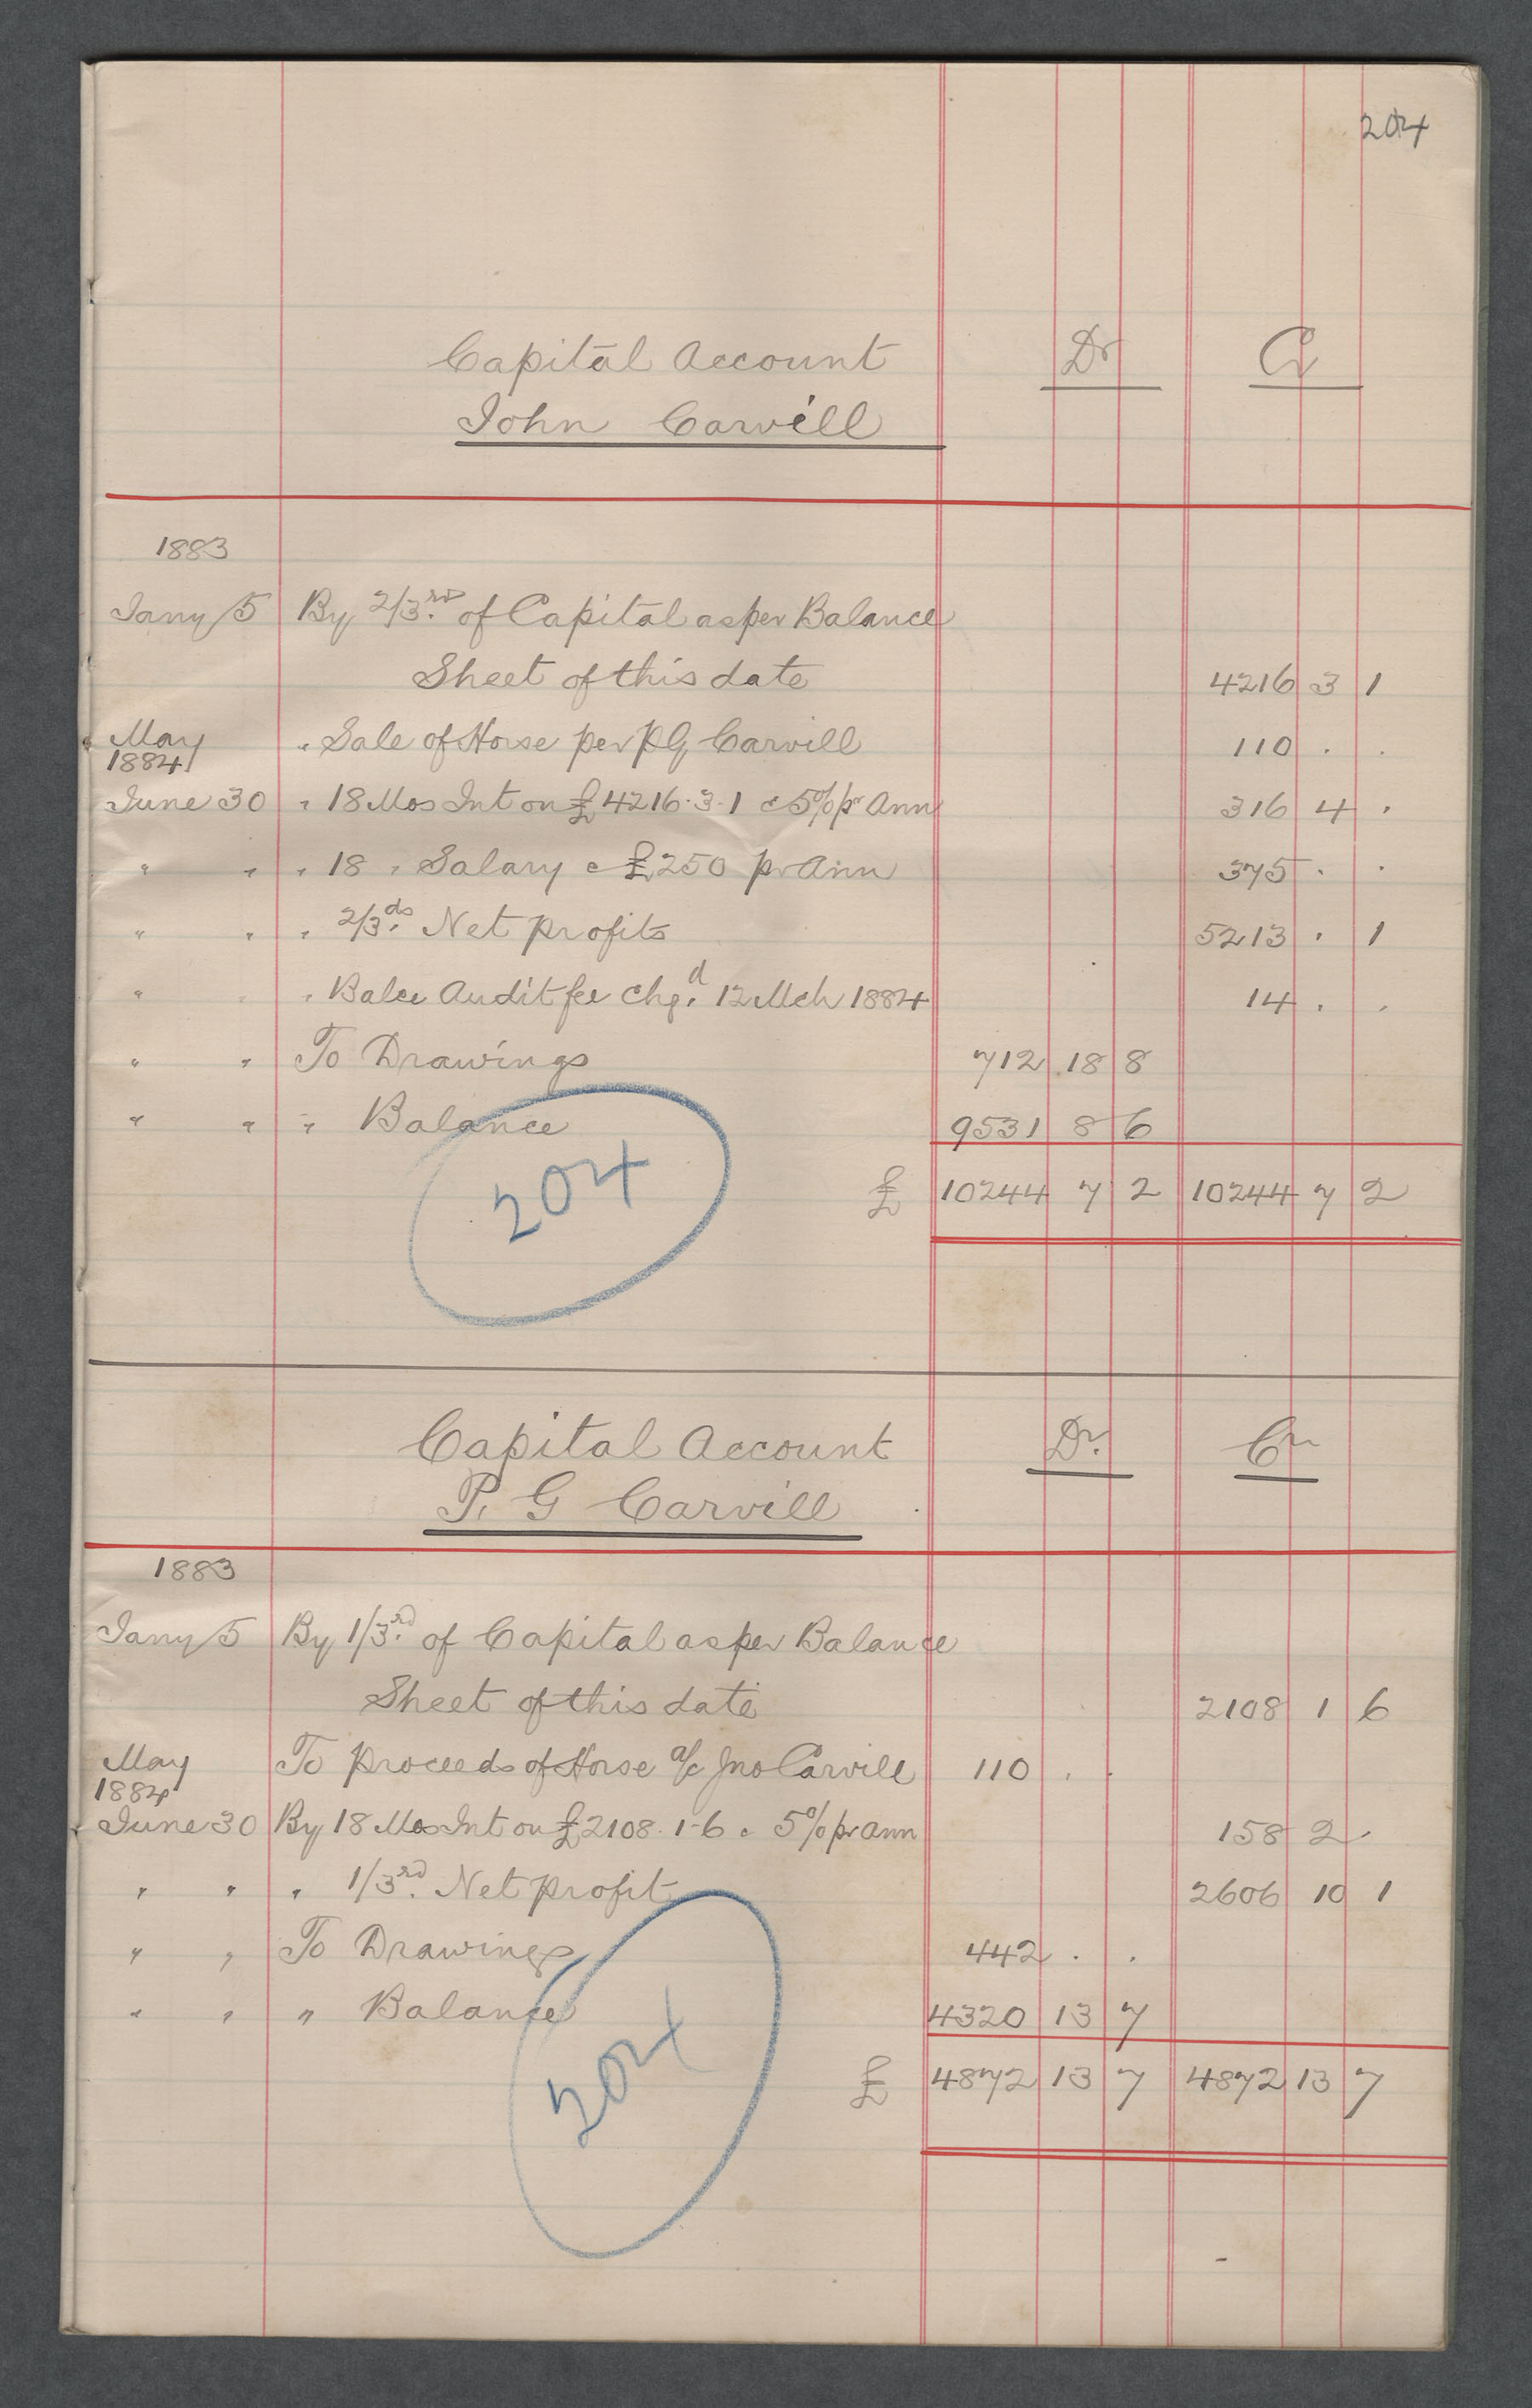 204
Capital Account Dr Cr
John Carvill
1883
Jany 5 By 2/3rd of Capital as per Balance
Sheet of this date 4216 3 1
May " Sale of Horse per PG Carvill 110 . .
1884
June 30 " 18 Mos Int on £4216.3.1 @ 5% pr Ann 316 4 .
" " " 18 " Salary @ £250 pr Ann 375 . .
" " " 2/3ds Net profits 5213 . 1
" " " Balce Audit fee chgd 12 Mch 1884 14 . .
" " To Drawings 712 18 8
" " " Balance 9531 8 6
204
£ 10244 7 2 10244 7 2
Capital Account Dr. Cr
P. G Carvill
1883
Jany 5 By 1/3rd of Capital as per Balance
Sheet of this date 2108 1 6
May To proceeds of Horse a/c Jno Carvill 110 . .
1884
June 30 By 18 Mos Int on £2108.1-6 @ 5% pr Ann 158 2 .
" " " 1/3rd Net profit 2606 10 1
" " To Drawings 442 . .
" " " Balance 4320 13 7
204
£ 4872 13 7 4872 13 7